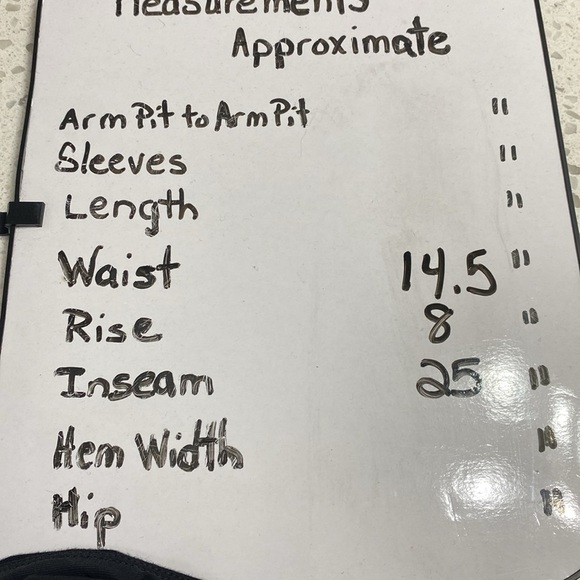 Measurements
Approximate
Arm Pit to Arm Pit "
Sleeves "
Length "
Waist 14.5 "
Rise 8 "
Inseam 25 "
Hem Width "
Hip "